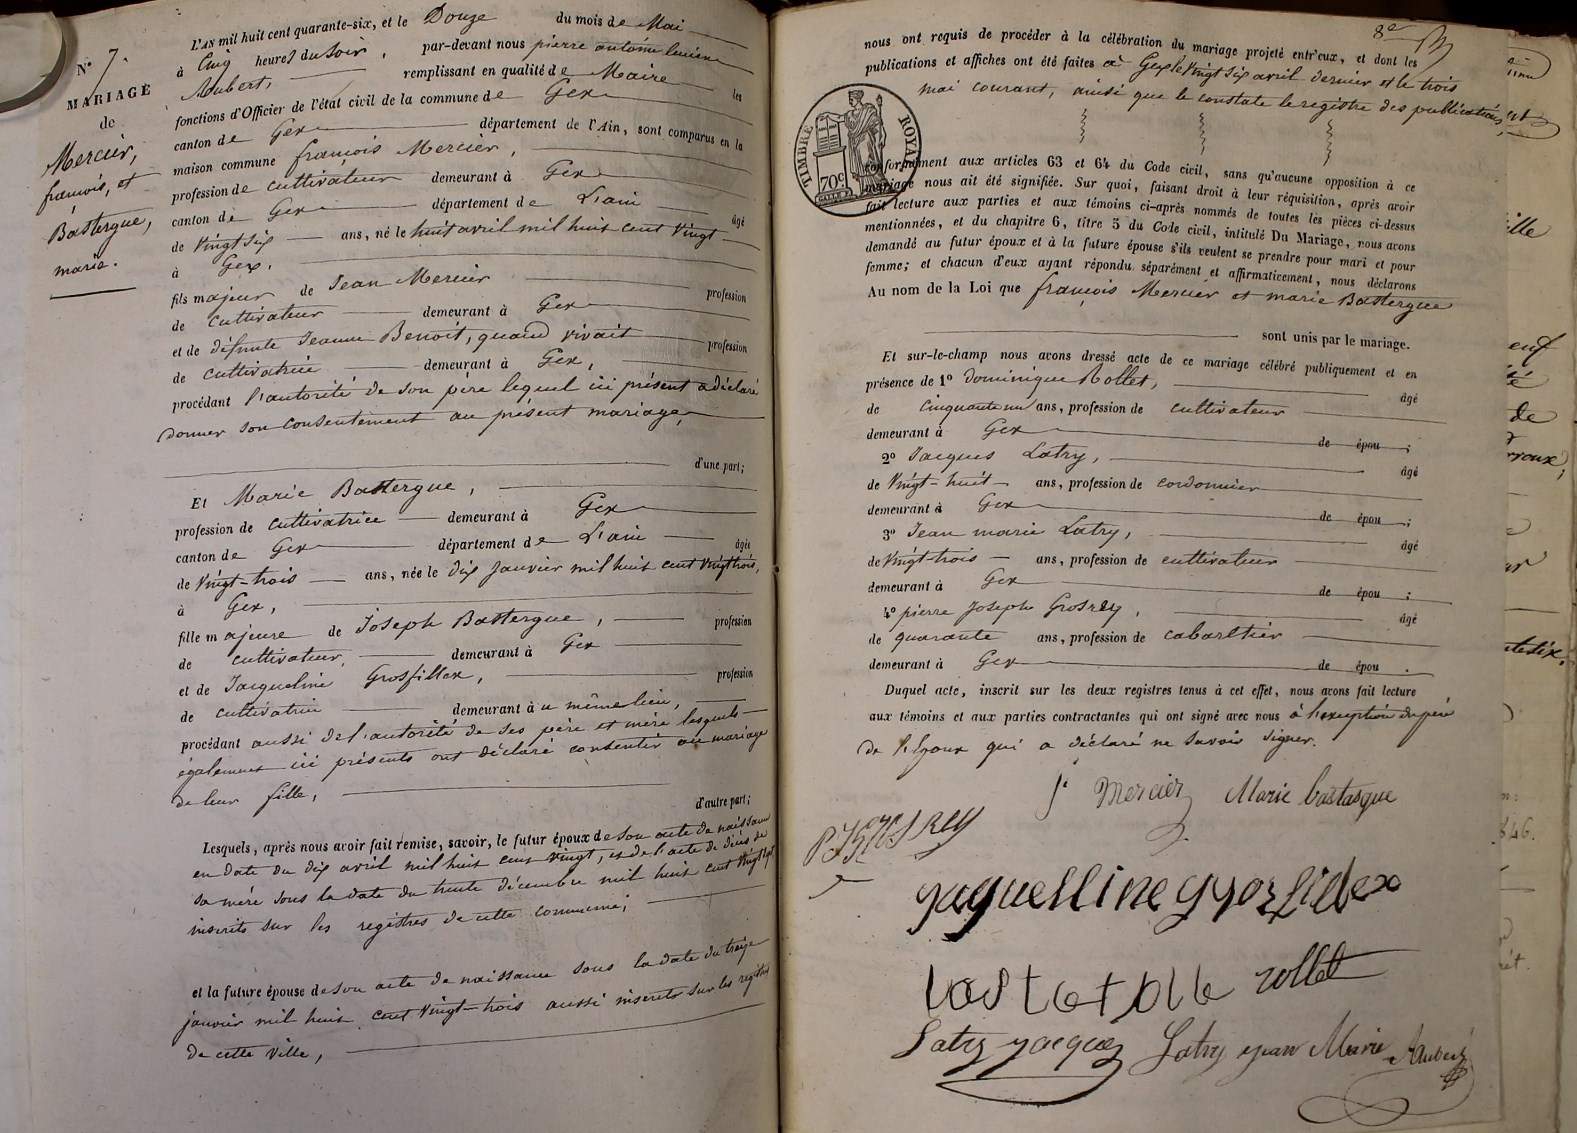 N° 7.
MARIAGE
de
Mercier,
françois, et
Bastergue,
marie.
L'AN mil huit cent quarante-six, et le Douze du mois de Mai
à Cinq heures du soir, par-devant nous pierre antoine lucien
Aubert, remplissant en qualité de Maire les
fonctions d'Officier de l'état civil de la commune de Gex
canton de Gex département de l'Ain, sont comparus en la
maison commune françois Mercier,
profession de cultivateur demeurant à Gex
canton de Gex département de L'ain âgé
de vingt six ans, né le huit avril mil huit cent vingt
à Gex,
fils majeur de Jean Mercier profession
de cultivateur demeurant à Gex
et de défunte Jeanne Benoit, quand vivait profession
de cultivatrice demeurant à Gex,
procédant l'autorité de son père lequel ici présent a déclaré
donner son consentement au présent mariage,
d'une part;
Et Marie Bastergue,
profession de cultivatrice demeurant à Gex
canton de Gex département de L'ain âgée
de vingt-trois ans, née le dix janvier mil huit cent vingt trois,
à Gex,
fille majeure de Joseph Bastergue, profession
de cultivateur, demeurant à Gex
et de Jacqueline Grosfillex, profession
de cultivatrice demeurant à u même lieu,
procédant aussi de l'autorité de ses père et mère lesquels
également ici présents ont déclaré consentir au mariage
de leur fille,
d'autre part;
Lesquels, après nous avoir fait remise, savoir, le futur époux de son acte de naissance
en date du dix avril mil huit cent vingt, et de l'acte de décès de
sa mère sous la date du trente décembre mil huit cent vingt sept
inscrits sur les registres de cette commune;
et la future épouse de son acte de naissance sous la date du treize
janvier mil huit cent vingt-trois aussi inscrits sur les registres
de cette ville,
8e
nous ont requis de procéder à la célébration du mariage projeté entr'eux, et dont les
publications et affiches ont été faites à Gex le vingt six avril dernier et le trois
mai courant, ainsi que le constate le registre des publications,
TIMBRE ROYAL
70c
conformément aux articles 63 et 64 du Code civil, sans qu'aucune opposition à ce
mariage nous ait été signifiée. Sur quoi, faisant droit à leur réquisition, après avoir
fait lecture aux parties et aux témoins ci-après nommés de toutes les pièces ci-dessus
mentionnées, et du chapitre 6, titre 5 du Code civil, intitulé Du Mariage, nous avons
demandé au futur époux et à la future épouse s'ils veulent se prendre pour mari et pour
femme; et chacun d'eux ayant répondu séparément et affirmativement, nous déclarons
Au nom de la Loi que françois Mercier et marie Bastergue
sont unis par le mariage.
Et sur-le-champ nous avons dressé acte de ce mariage célébré publiquement et en
présence de 1° Dominique Rollet, âgé
de cinquante un ans, profession de cultivateur
demeurant à Gex de épou ;
2° Jacques Latry, âgé
de vingt-huit ans, profession de cordonnier
demeurant à Gex de épou ;
3° Jean marie Latry, âgé
de vingt-trois ans, profession de cultivateur
demeurant à Gex de épou ;
4° pierre Joseph Grosrey, âgé
de quarante ans, profession de cabartier
demeurant à Gex de épou .
Duquel acte, inscrit sur les deux registres tenus à cet effet, nous avons fait lecture
aux témoins et aux parties contractantes qui ont signé avec nous à l'exception du père
de l'époux qui a déclaré ne savoir signer.
Mercier Marie bastasque
rollet
Latry jacques Latry jean Marie Aubert